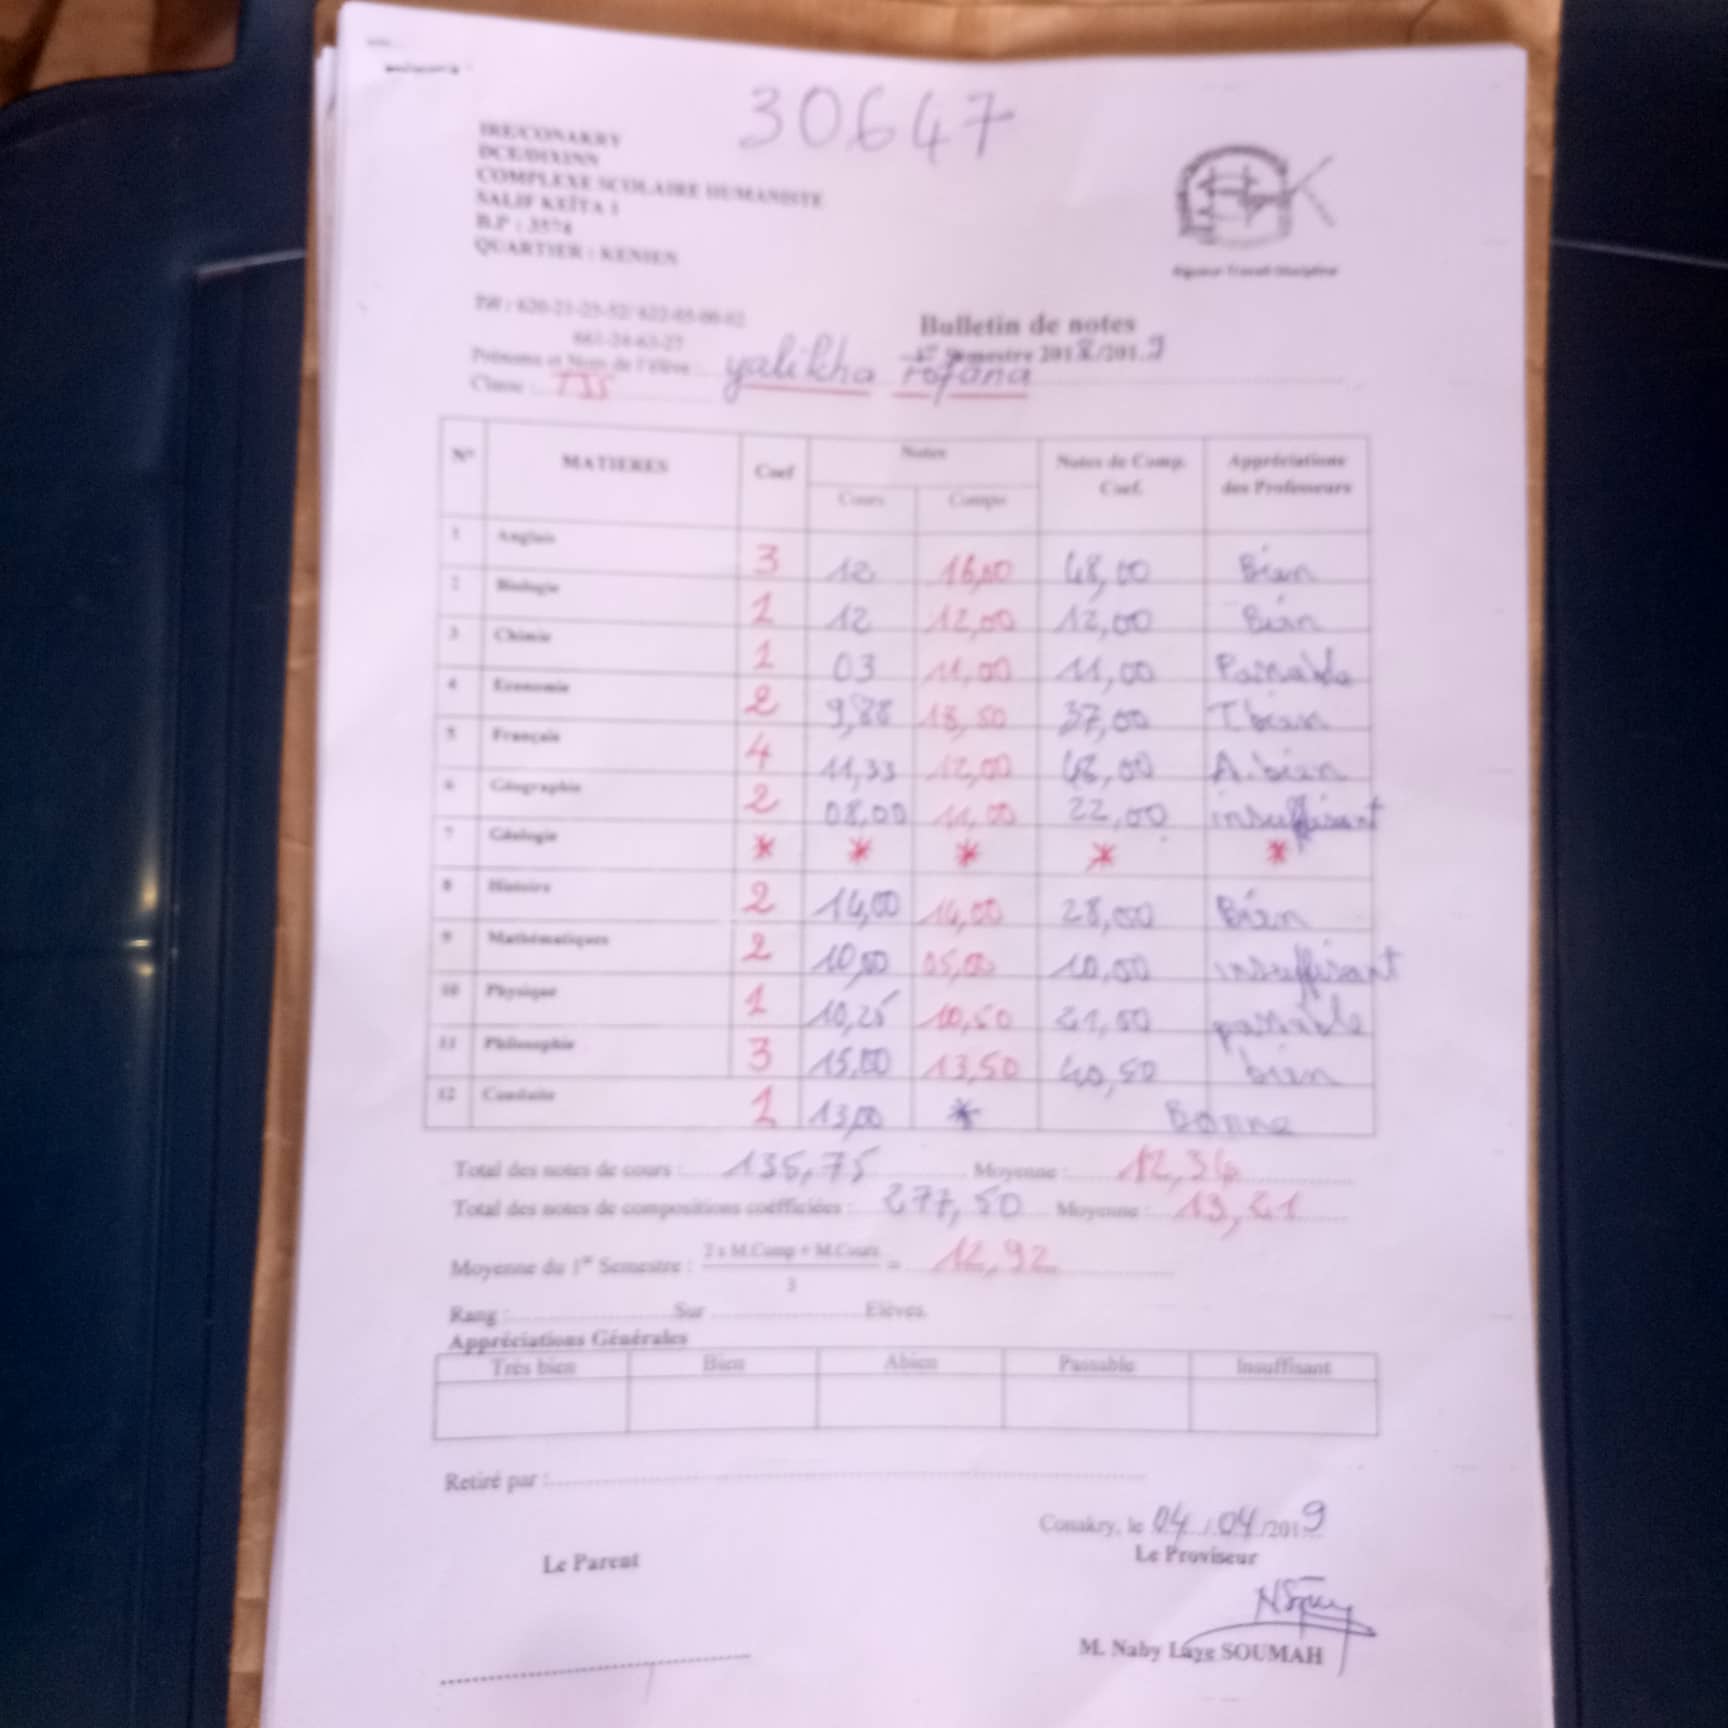 30647
IRE/CONAKRY
DCE/DIXINN
COMPLEXE SCOLAIRE HUMANISTE
SALIF KEÏTA 1
B.P : 3574
QUARTIER : KENIEN
Rigueur-Travail-Discipline
Tél : 620-21-25-52/
Bulletin de notes
1er Semestre 2018/2019
Prénoms et Nom de l'élève : yalikha fofana
Classe : TSS
N° MATIERES Coef Notes Notes de Comp. Coef. Appréciations des Professeurs
Cours Compo
1 Anglais 3 12 16,00 48,00 Bien
2 Biologie 1 12 12,00 12,00 Bien
3 Chimie 1 03 11,00 11,00 Passable
4 Economie 2 9,88 18,50 37,00 T bien
5 Français 4 11,33 12,00 48,00 A.bien
6 Géographie 2 08,00 11,00 22,00 insuffisant
7 Géologie * * * * *
8 Histoire 2 14,00 14,00 28,00 Bien
9 Mathématiques 2 10,00 05,00 10,00 insuffisant
10 Physique 1 10,25 10,50 21,00 passable
11 Philosophie 3 15,00 13,50 40,50 bien
12 Conduite 1 13,00 * Bonne
Total des notes de cours : 135,75 Moyenne : 12,34
Total des notes de compositions coéfficiées : 277,50 Moyenne : 13,21
Moyenne du 1er Semestre : 2 x M.Comp + M.Cours = 12,92
3
Rang : Sur Elèves.
Appréciations Générales
Très bien Bien Abien Passable Insuffisant
Retiré par :
Conakry, le 04/04/2019
Le Parent Le Proviseur
M. Naby Laye SOUMAH